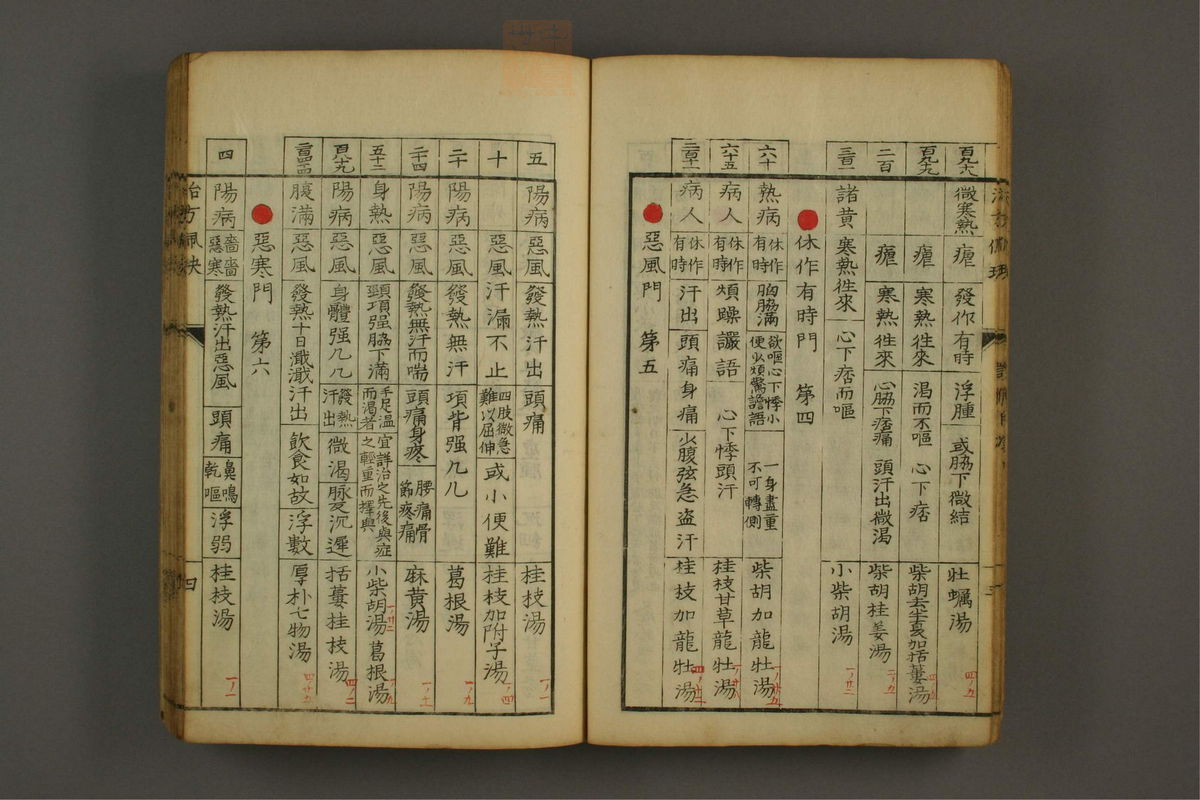 百九十八 微寒熱 瘧 發作有時 浮腫 或脇下微結 牡蠣湯 四ノ五
百九十九 瘧 寒熱徃來 渴而不嘔 心下痞 柴胡去半夏加括蔞湯
二百 瘧 寒熱徃來 心脇下痞痛 頭汗出微渴 柴胡桂姜湯 二ノ五
諸黄 寒熱徃來 心下痞而嘔 小柴胡湯 一ノ廿二
休作有時門 第四
六十 熱病 休作有時 胸脇滿 欲嘔心下悸小便少煩驚譫語 一身盡重不可轉側 柴胡加龍牡湯
六十五 病人 休作有時 煩躁讝語 心下悸頭汗 桂枝甘草龍牡湯
病人 休作有時 汗出 頭痛身痛 少腹弦急盗汗 桂枝加龍牡湯
惡風門 第五
五 陽病 惡風 發熱汗出 頭痛 桂枝湯 一ノ一
十 惡風 汗漏不止 四肢微急難以屈伸 或小便難 桂枝加附子湯 一ノ四
二十 陽病 惡風 發熱無汗 項背强几几 葛根湯 一ノ九
二十四 陽病 惡風 發熱無汗而喘 頭痛身疼 腰痛骨節疼痛 麻黄湯
五十二 身熱 惡風 頸項强脇下滿 手足温而渴者 宜詳治之先後與症之輕重而擇與 小柴胡湯 一ノ廿二 葛根湯 一ノ九
百八十九 陽病 惡風 身體强几几 發熱汗出 微渴 脉反沉遲 括蔞桂枝湯 四ノ二
腹滿 惡風 發熱十日濈濈汗出 飲食如故 浮數 厚朴七物湯 四ノ廿九
惡寒門 第六
四 陽病 嗇嗇惡寒 發熱汗出惡風 頭痛 鼻鳴乾嘔 浮弱 桂枝湯 一ノ一
四